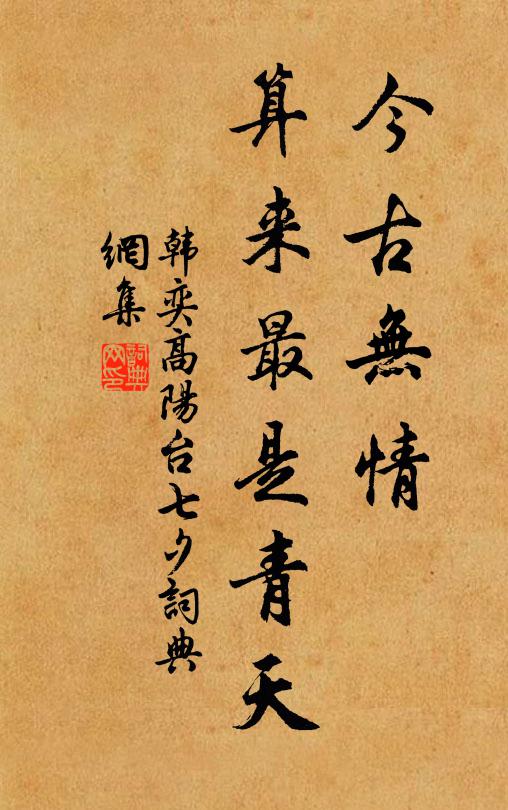 今古無情
算来最是青天
韩奕高陽台七夕詞典
網集
詞典
网印